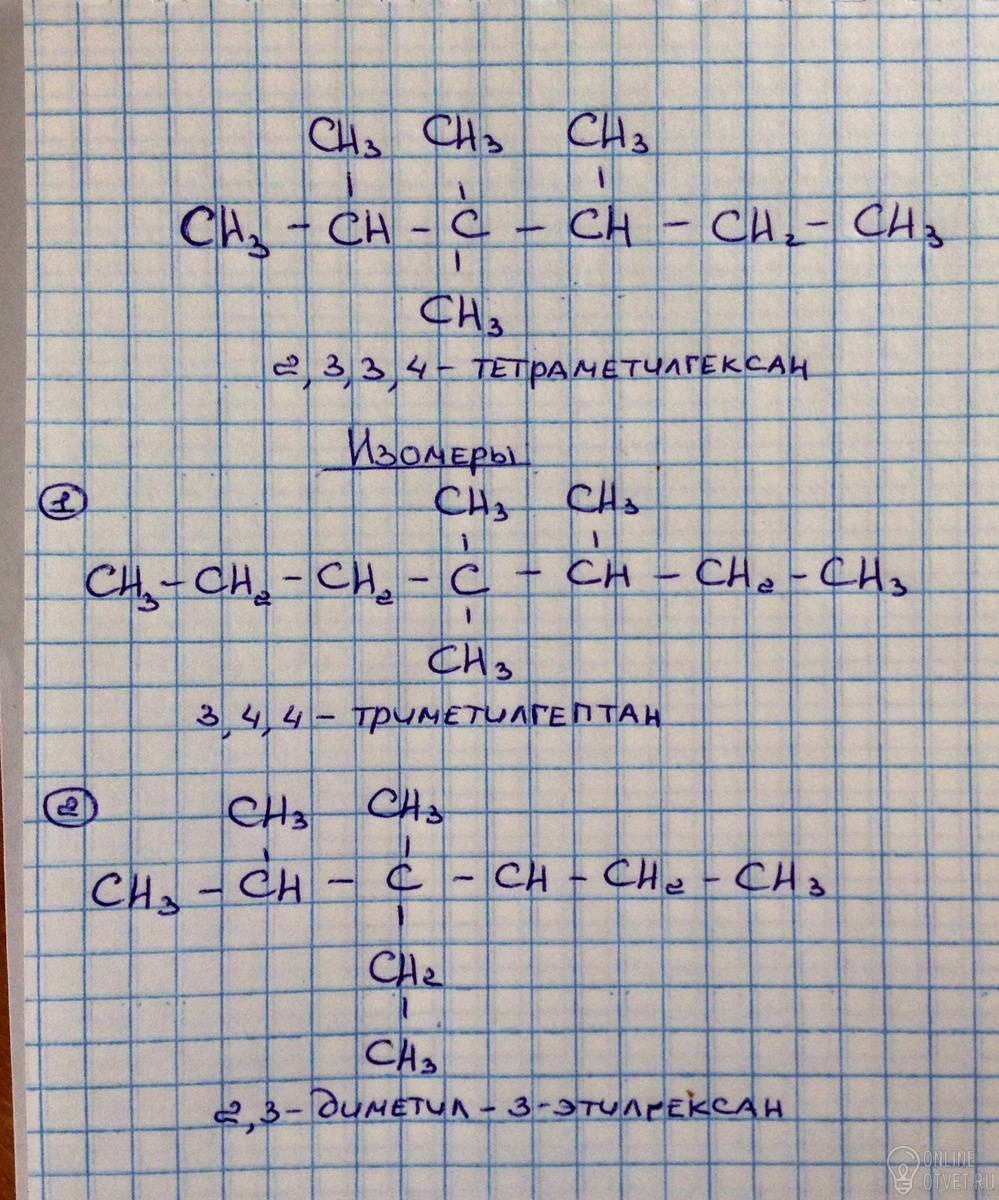 CH₃ CH₃ CH₃
CH₃ - CH - C - CH - CH₂ - CH₃
CH₃
2,3,3,4 - ТЕТРАМЕТИЛГЕКСАН
Изомеры
1
CH₃ CH₃
CH₃ - CH₂ - CH₂ - C - CH - CH₂ - CH₃
CH₃
3,4,4 - ТРИМЕТИЛГЕПТАН
2
CH₃ CH₃
CH₃ - CH - C - CH - CH₂ - CH₃
CH₂
CH₃
2,3 - ДИМЕТИЛ - 3 - ЭТИЛГЕКСАН
ONLINE
OTVET.RU